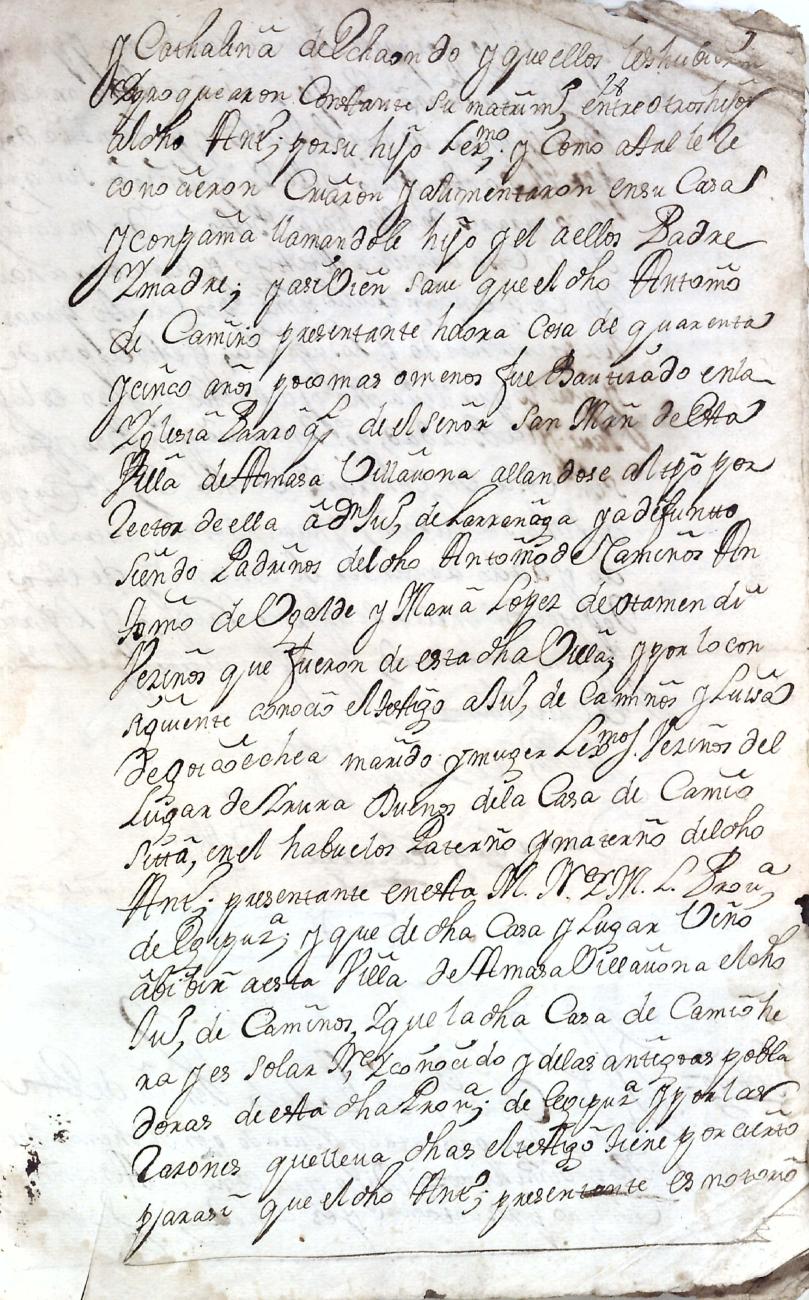 y Cathalina de Echaondo y que ellos les hubieron
y Proquearon Constante su matrim,º entre otros hijos
28
al dho Antº; por su hijo Lexmo. y Como atal le Re
conocieron Criaron y alimentaron en su Casa
y conpañia llamandole hijo y el a ellos Padre
Y madre; y asi Vien save que el dho Antonio
de Camino presentante haora cosa de quarenta
y cinco años poco mas o menos fue Bautizado en la
Yglesia Parroql de el señor San Mrn de esta
Villa de Amasa Villavona allandose al tpo por
Rector de ella a Dn Juº, de Larrenaga ya difunto
siendo Padrinos del dho Antonio de Caminos An
tonio de Ugalde y Maria Lopez de otamendi
Vezinos que fueron de esta dha Villa; y por lo con
siguiente conocio el testigo a Juº, de Caminos y Luisa
de goicoechea marido y muger Lexmos. Vezinos del
Lugar de Yrura Duenos de la Casa de Camio
sitta, en el habuelos Paterno y materno del dho
Antº. presentante en esta M. N. Y M. L. Prova
de Guipuza; y que de dha Casa y Lugar Vino
a bibir a esta Villa de Amasa Villavona el dho
Juº, de Caminos, Y que la dha Casa de Camio he
ra y es solar Ne, Y conocido y de las antiguas pobla
doras de esta dha Prova; de Guipuza y por las
Razones que lleva dhas el testigo tiene por cierto
para si que el dho Antº; presentante es notorio